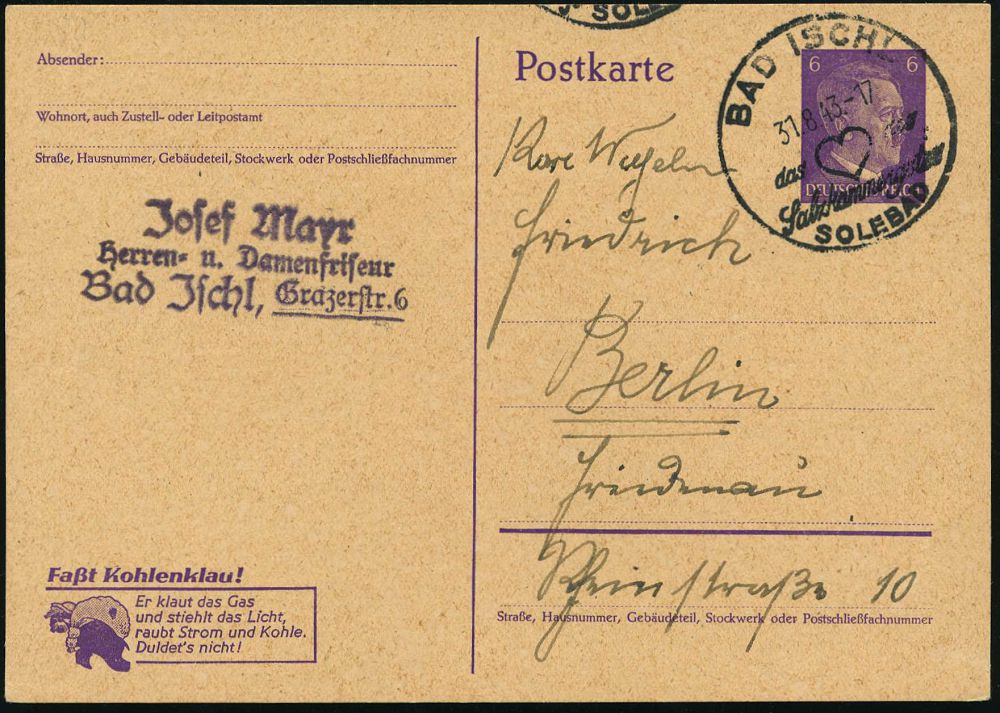 SOLE
Absender:
Wohnort, auch Zustell- oder Leitpostamt
Straße, Hausnummer, Gebäudeteil, Stockwerk oder Postschließfachnummer
Josef Mayr
Herren- u. Damenfriseur
Bad Ischl, Grazerstr. 6
Faßt Kohlenklau!
Er klaut das Gas
und stiehlt das Licht,
raubt Strom und Kohle.
Duldet's nicht!
Postkarte
6 6
DEUTSCHES REICH
BAD ISCHL
31.8.43.-17
das des
Salzkammergutes
SOLEBAD
Karl Wilhelm
Friedrich
Berlin
Friedenau
Rheinstraße 10
Straße, Hausnummer, Gebäudeteil, Stockwerk oder Postschließfachnummer